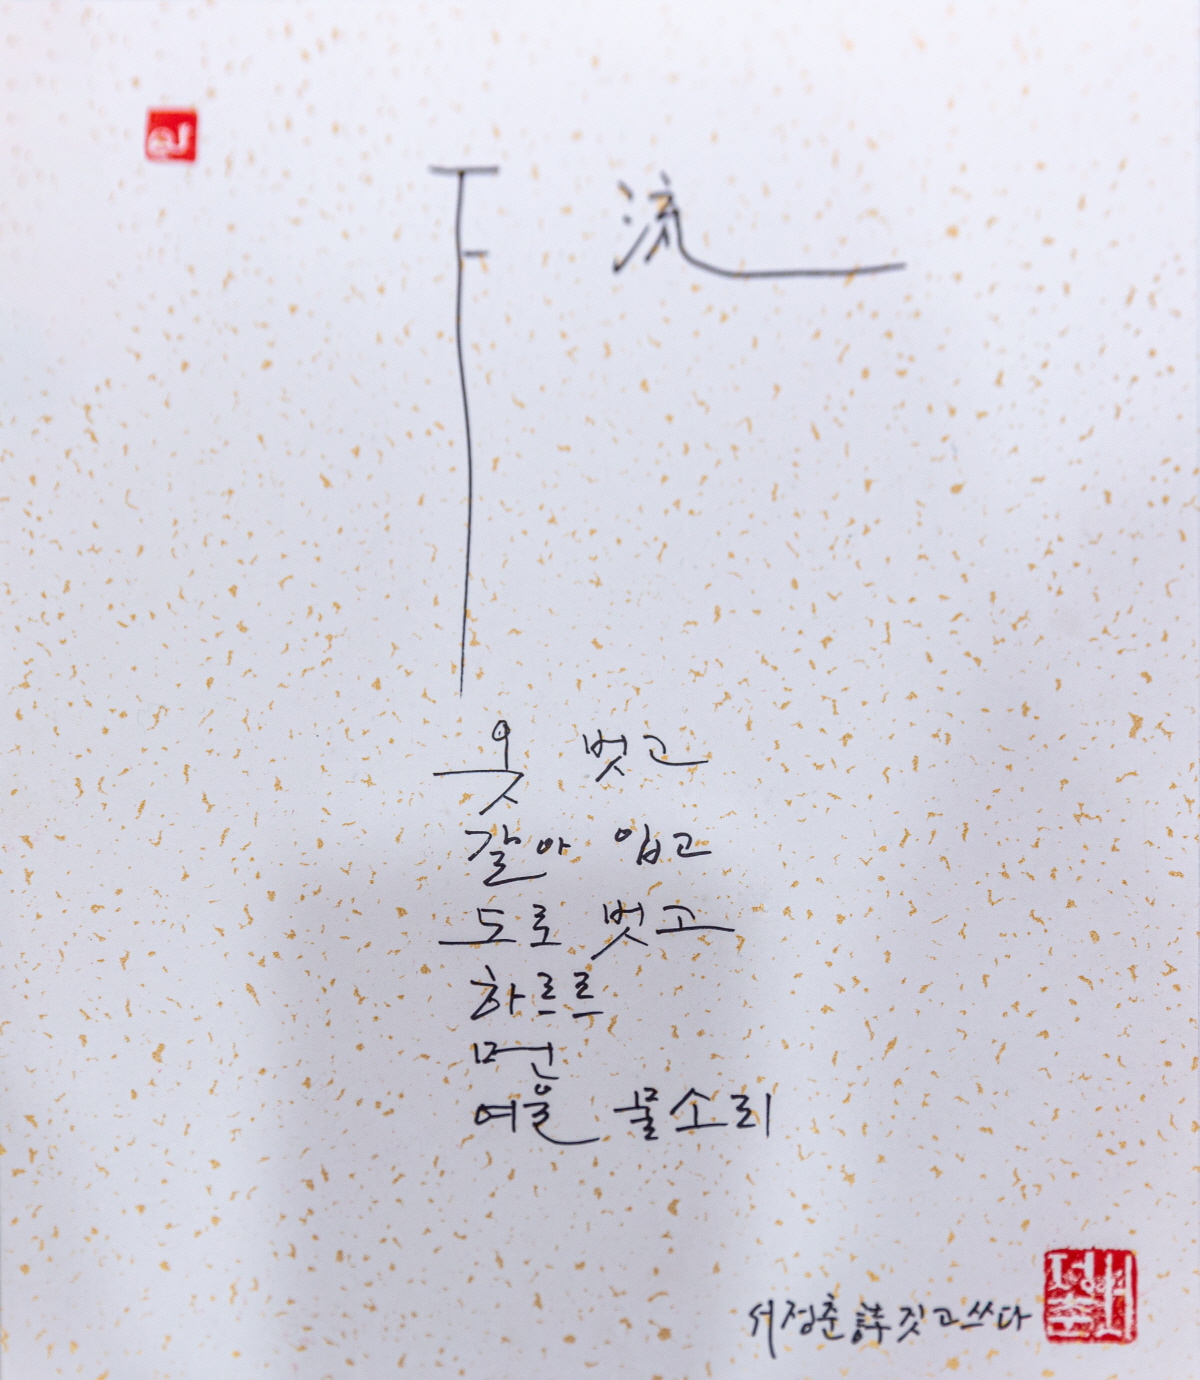 下 流
옷 벗고
갈아 입고
도로 벗고
하르르
먼
여울 물소리
서정춘 詩 짓고 쓰다